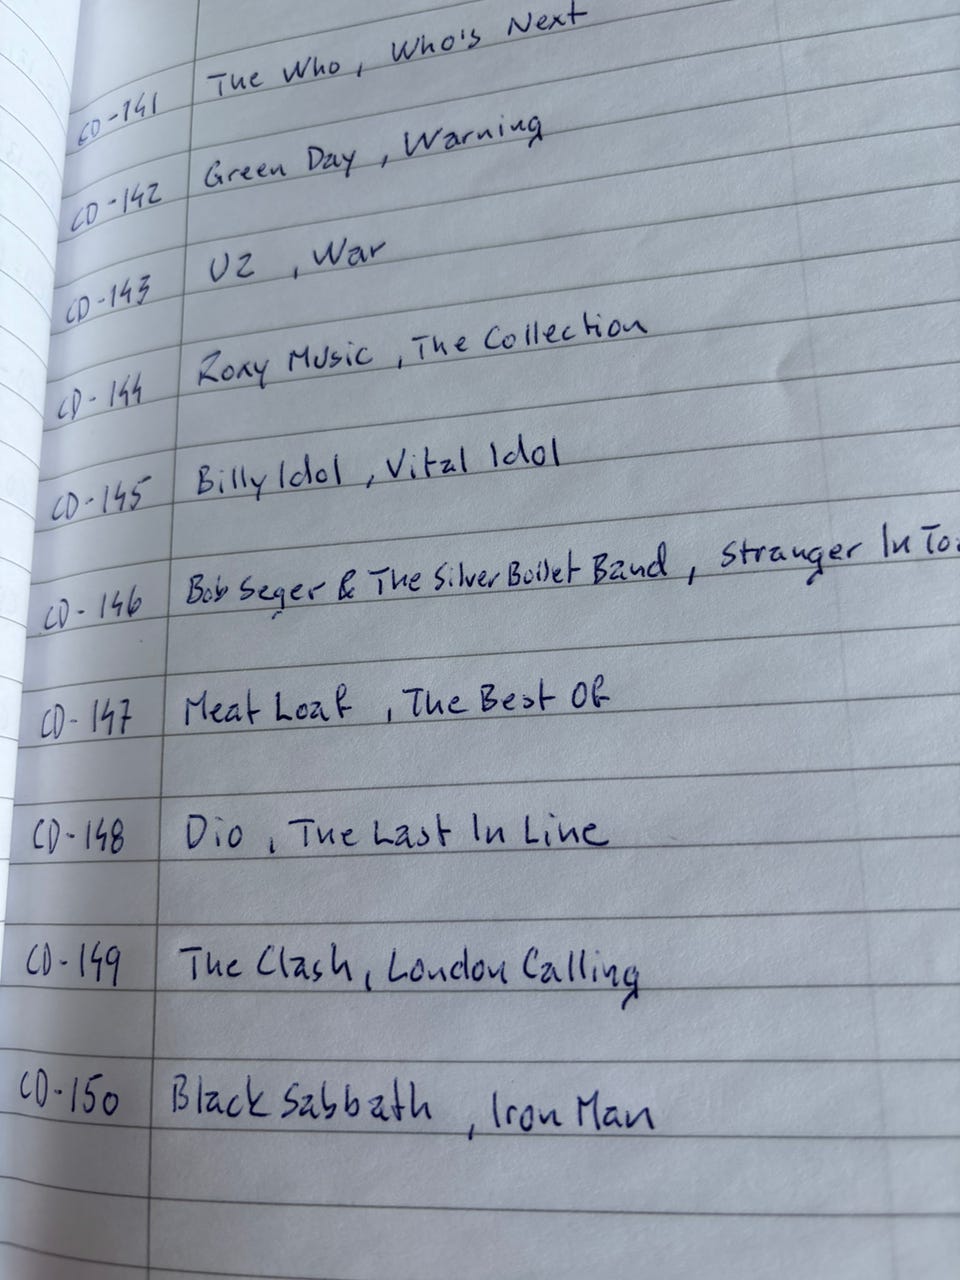 CD-141 The Who, Who's Next
CD-142 Green Day, Warning
CD-143 U2, War
CD-144 Roxy Music, The Collection
CD-145 Billy Idol, Vital Idol
CD-146 Bob Seger & The Silver Bullet Band, Stranger In To
CD-147 Meat Loaf, The Best Of
CD-148 Dio, The Last In Line
CD-149 The Clash, London Calling
CD-150 Black Sabbath, Iron Man